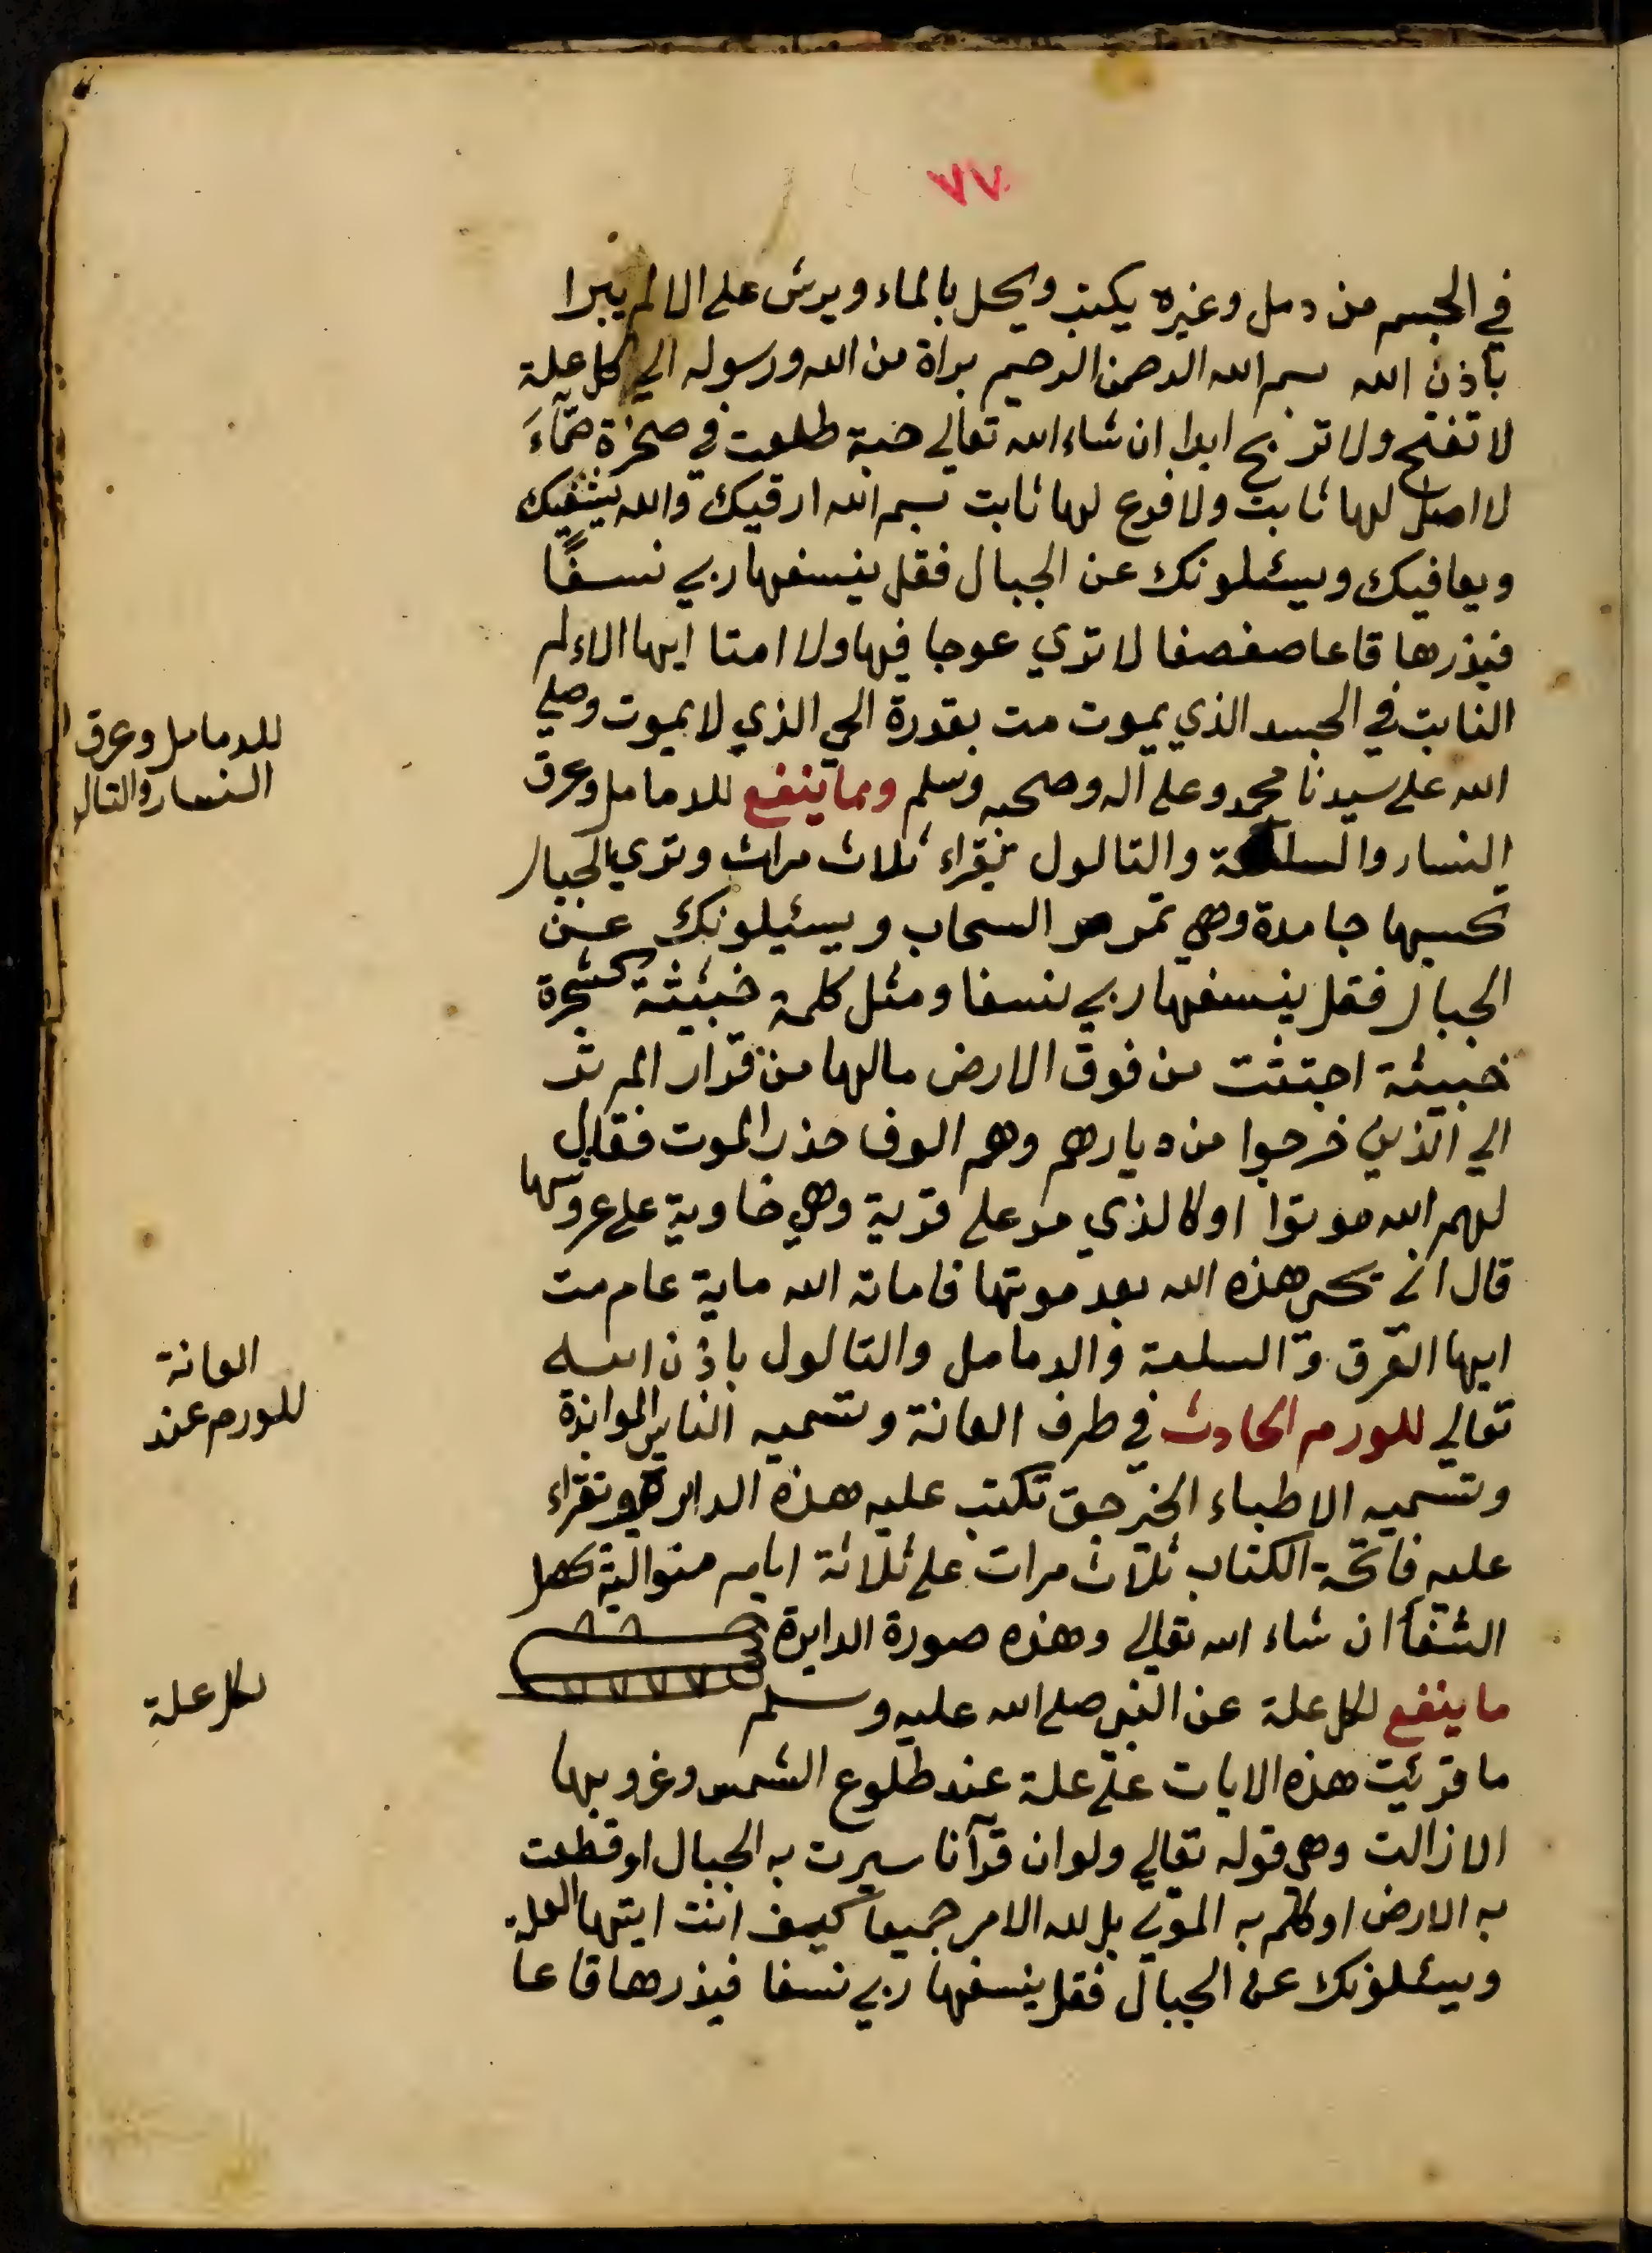 ٧٧
في الجسم من دمل وغيره يكتب ويحل بالماء ويرش على الالم يبرا
بأذن الله بسم الله الرحمن الرحيم براة من الله ورسوله الي كل علة
لا تفتح ولا تربح ابدا ان شاء الله تعالي حبة طلعت في صخرة صمآء
لا اصل لها ثابت ولا فرع لها نابت بسم الله ارقيك والله يشفيك
ويعافيك ويسئلونك عن الجبال فقل ينسفها ربي نسفًا
فيذرها قاعا صفصفا لا تري عوجا فيها ولا امتا ايها الالم
النابت في الجسد الذي يموت مت بقدرة الحي الذي لا يموت وصلي
الله على سيدنا محمد وعلى آله وصحبه وسلم ومما ينفع للدمامل وعرق
النسار والسلعة والتالول يقراء ثلاث مرات وتري الجبال
تحسبها جامدة وهي تمر مر السحاب ويسئيلونك عن
الجبال فقل ينسفها ربي نسفا ومثل كلمة خبيثة كشجرة
خبيثة اجتثت من فوق الارض مالها من قرار الم تر
الي الذين خرجوا من ديارهم وهم الوف حذر الموت فقال
لهم الله موتوا اوكالذي مر على قرية وهي خاوية على عروشها
قال اني يحي هذه الله بعد موتها فاماته الله ماية عام مت
ايها العرق والسلعة والدمامل والتالول باذن الله
تعالي للورم الحادث في طرف العانة وتسميه الناس الموانزة
وتسميه الاطباء الخيرجق تكتب عليه هذه الدايرة وتقراء
عليه فاتحة الكتاب ثلاث مرات على ثلاثة ايام متوالية يحصل
الشفأ ان شاء الله تعالي وهذه صورة الدايرة
ما ينفع لكل علة عن النبي صلى الله عليه وسلم
ما قرئت هذه الايات على علة عند طلوع الشمس وغروبها
الا زالت وهي قوله تعالي ولو ان قرآنا سيرت به الجبال او قطعت
به الارض او كلم به الموتي بل لله الامر جميعا كيف انت ايتها العلة
ويسئلونك عن الجبال فقل ينسفها ربي نسفا فيذرها قاعا
للدمامل وعرق
النسار والتالو
العانة
للورم عند
لكل علة